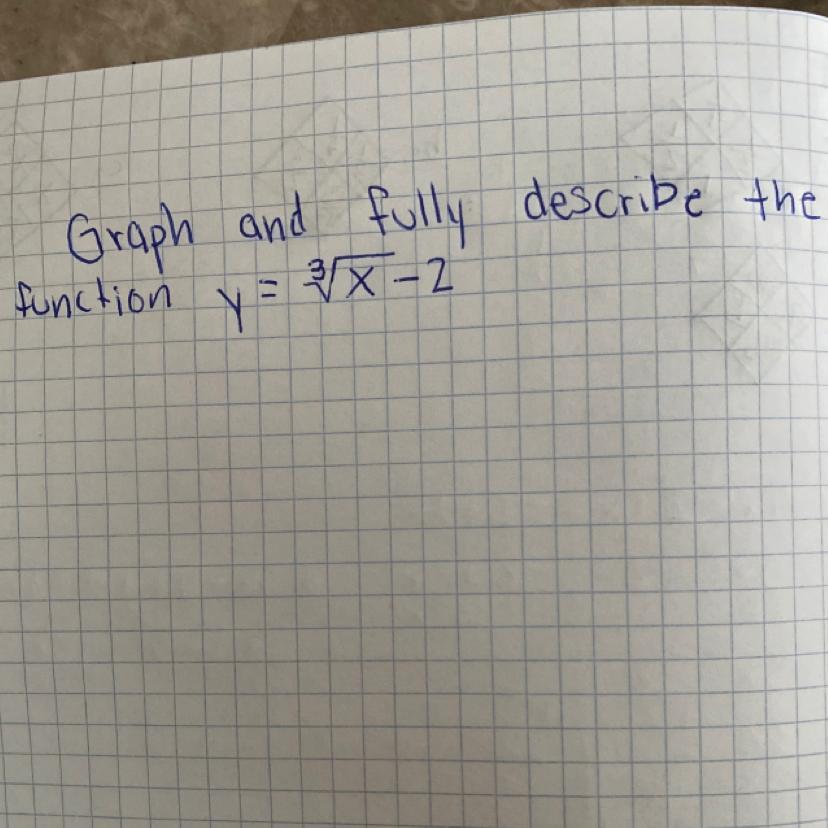 Graph and fully describe the
function y = ∛x - 2